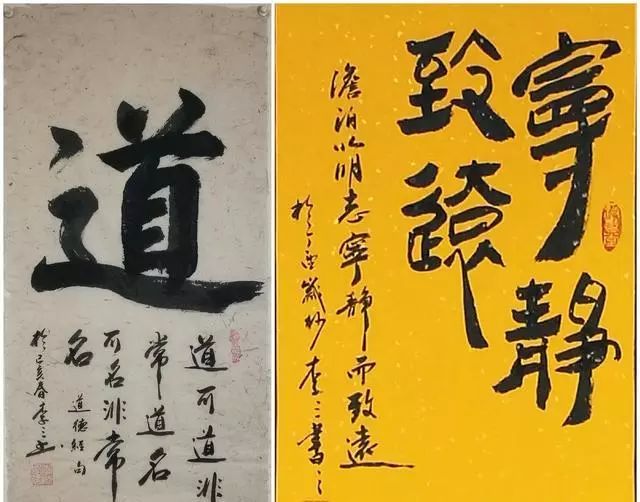 道
道可道非
常道名
可名非常
名
道德經句
於己亥春李三书
寧靜
致遠
澹泊以明志寧靜而致遠
於丁酉歲杪李三書